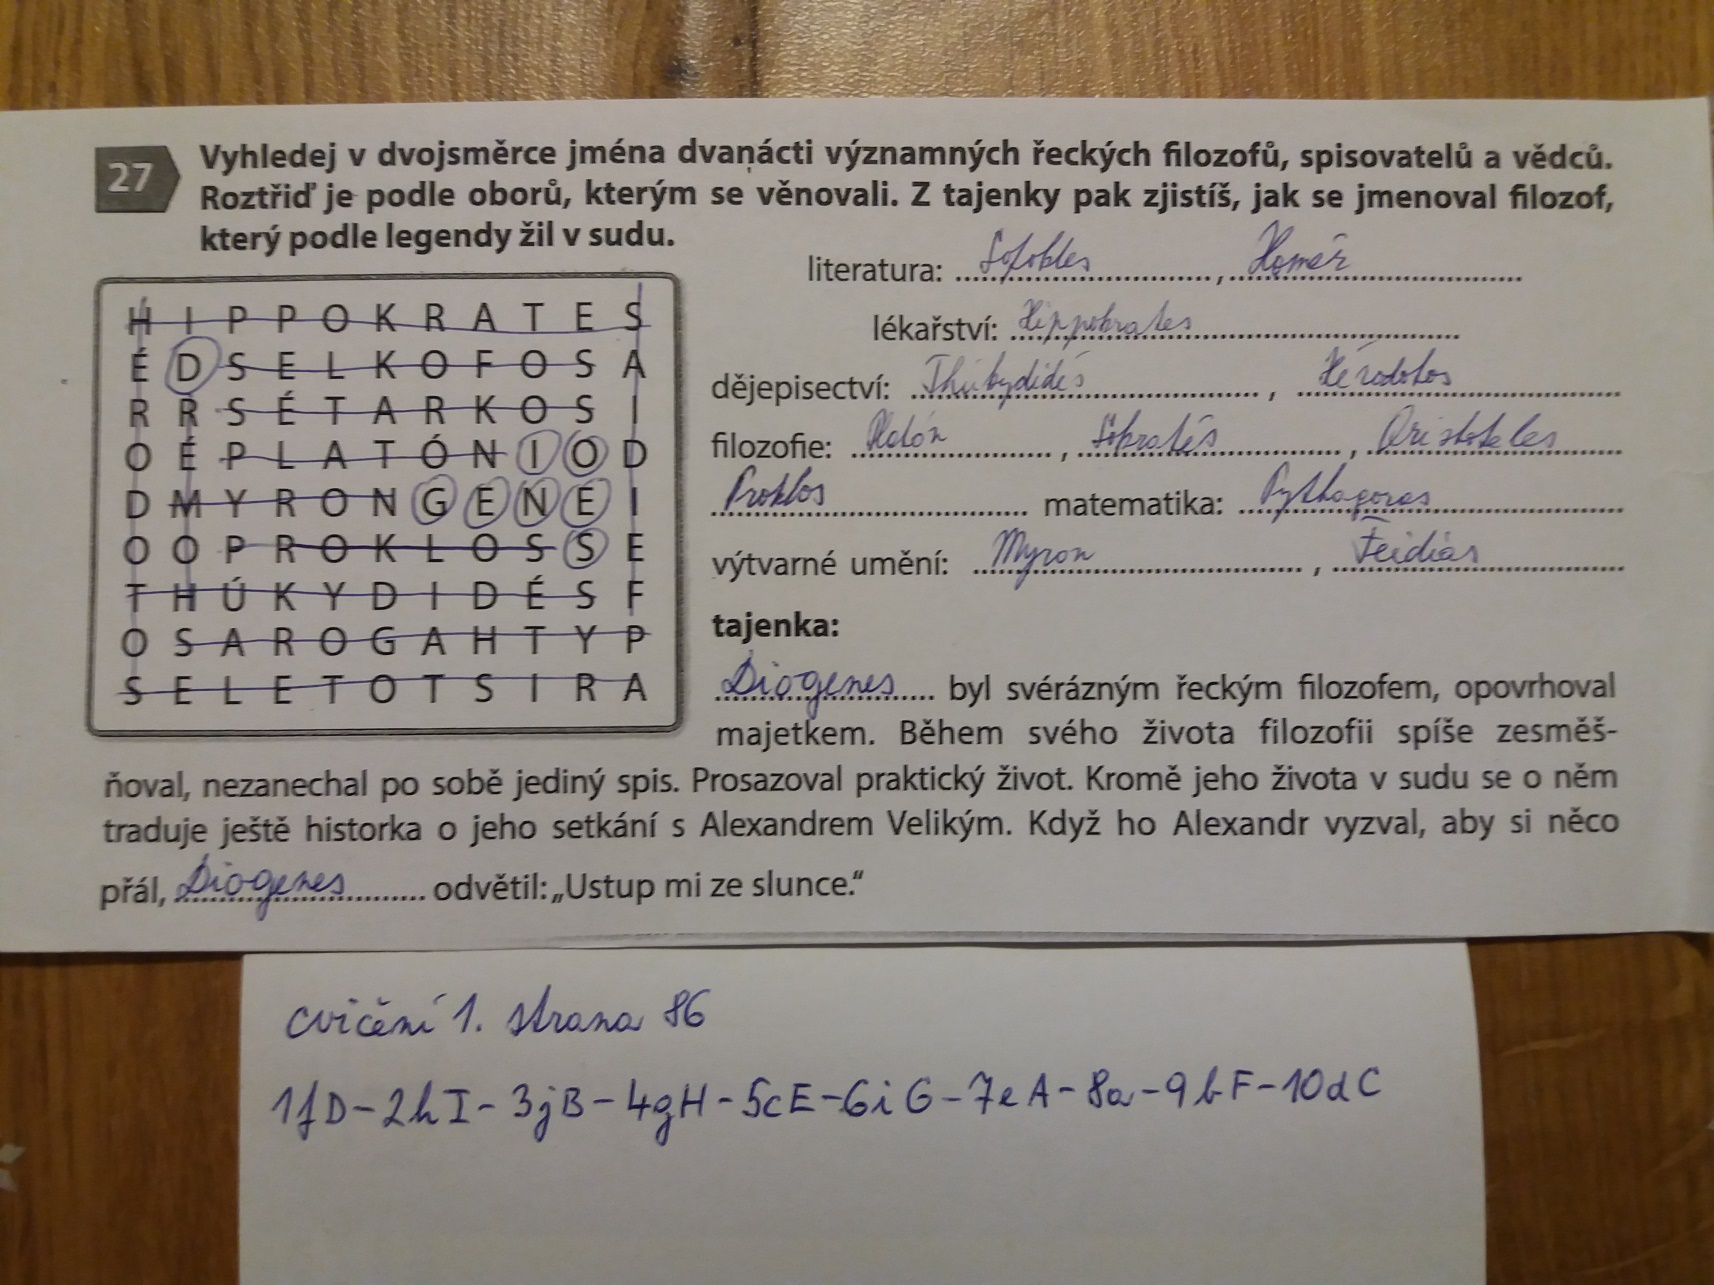 27
Vyhledej v dvojsměrce jména dvanácti významných řeckých filozofů, spisovatelů a vědců.
Roztřiď je podle oborů, kterým se věnovali. Z tajenky pak zjistíš, jak se jmenoval filozof,
který podle legendy žil v sudu.
H I P P O K R A T E S
É D S E L K O F O S A
R R S É T A R K O S I
O É P L A T Ó N I O D
D M Y R O N G E N E I
O O P R O K L O S S E
T H Ú K Y D I D É S F
O S A R O G A H T Y P
S E L E T O T S I R A
literatura: Sofokles, Homér
lékařství: Hippokrates
dějepisectví: Thúkydidés, Hérodotos
filozofie: Platón, Sokratés, Aristoteles
Proklos matematika: Pythagoras
výtvarné umění: Myron, Feidias
tajenka:
Diogenes byl svérázným řeckým filozofem, opovrhoval
majetkem. Během svého života filozofii spíše zesměš-
ňoval, nezanechal po sobě jediný spis. Prosazoval praktický život. Kromě jeho života v sudu se o něm
traduje ještě historka o jeho setkání s Alexandrem Velikým. Když ho Alexandr vyzval, aby si něco
přál, Diogenes odvětil: „Ustup mi ze slunce."
cvičení 1. strana 86
1fD-2hI-3jB-4gH-5cE-6iG-7eA-8a-9bF-10dC